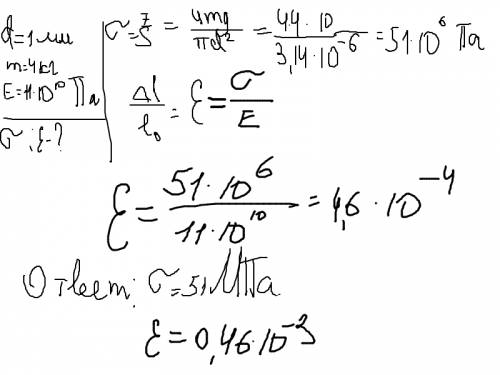 d=1мм
m=4кг
E=11·10^10 Па
σ; ε-?
σ = F/S = 4mg/πd² = 4·4·10/3,14·10^-6 = 51·10^6 Па
Δl/l₀ = ε = σ/E
ε = 51·10^6/11·10^10 = 4,6·10^-4
Ответ: σ=51МПа
ε=0,46·10^-3